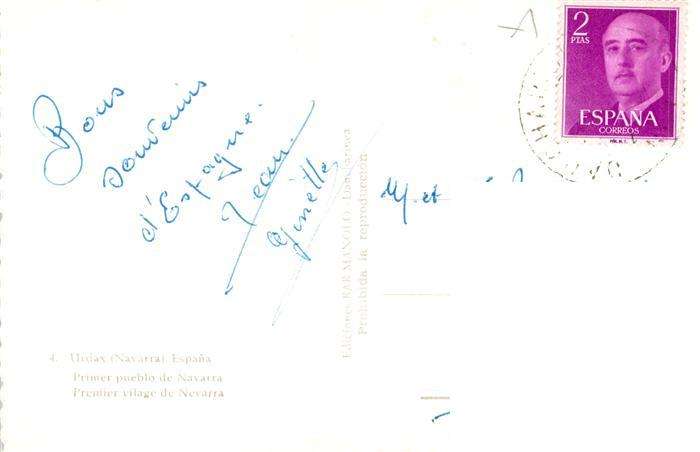 Bons
souvenirs
d'Espagne.
Jean
Ginette
M. et
2
PTAS
ESPAÑA
CORREOS
Prohibida la reproducción
4. Urdax (Navarra). España
Primer pueblo de Navarra
Premier vilage de Nevarra